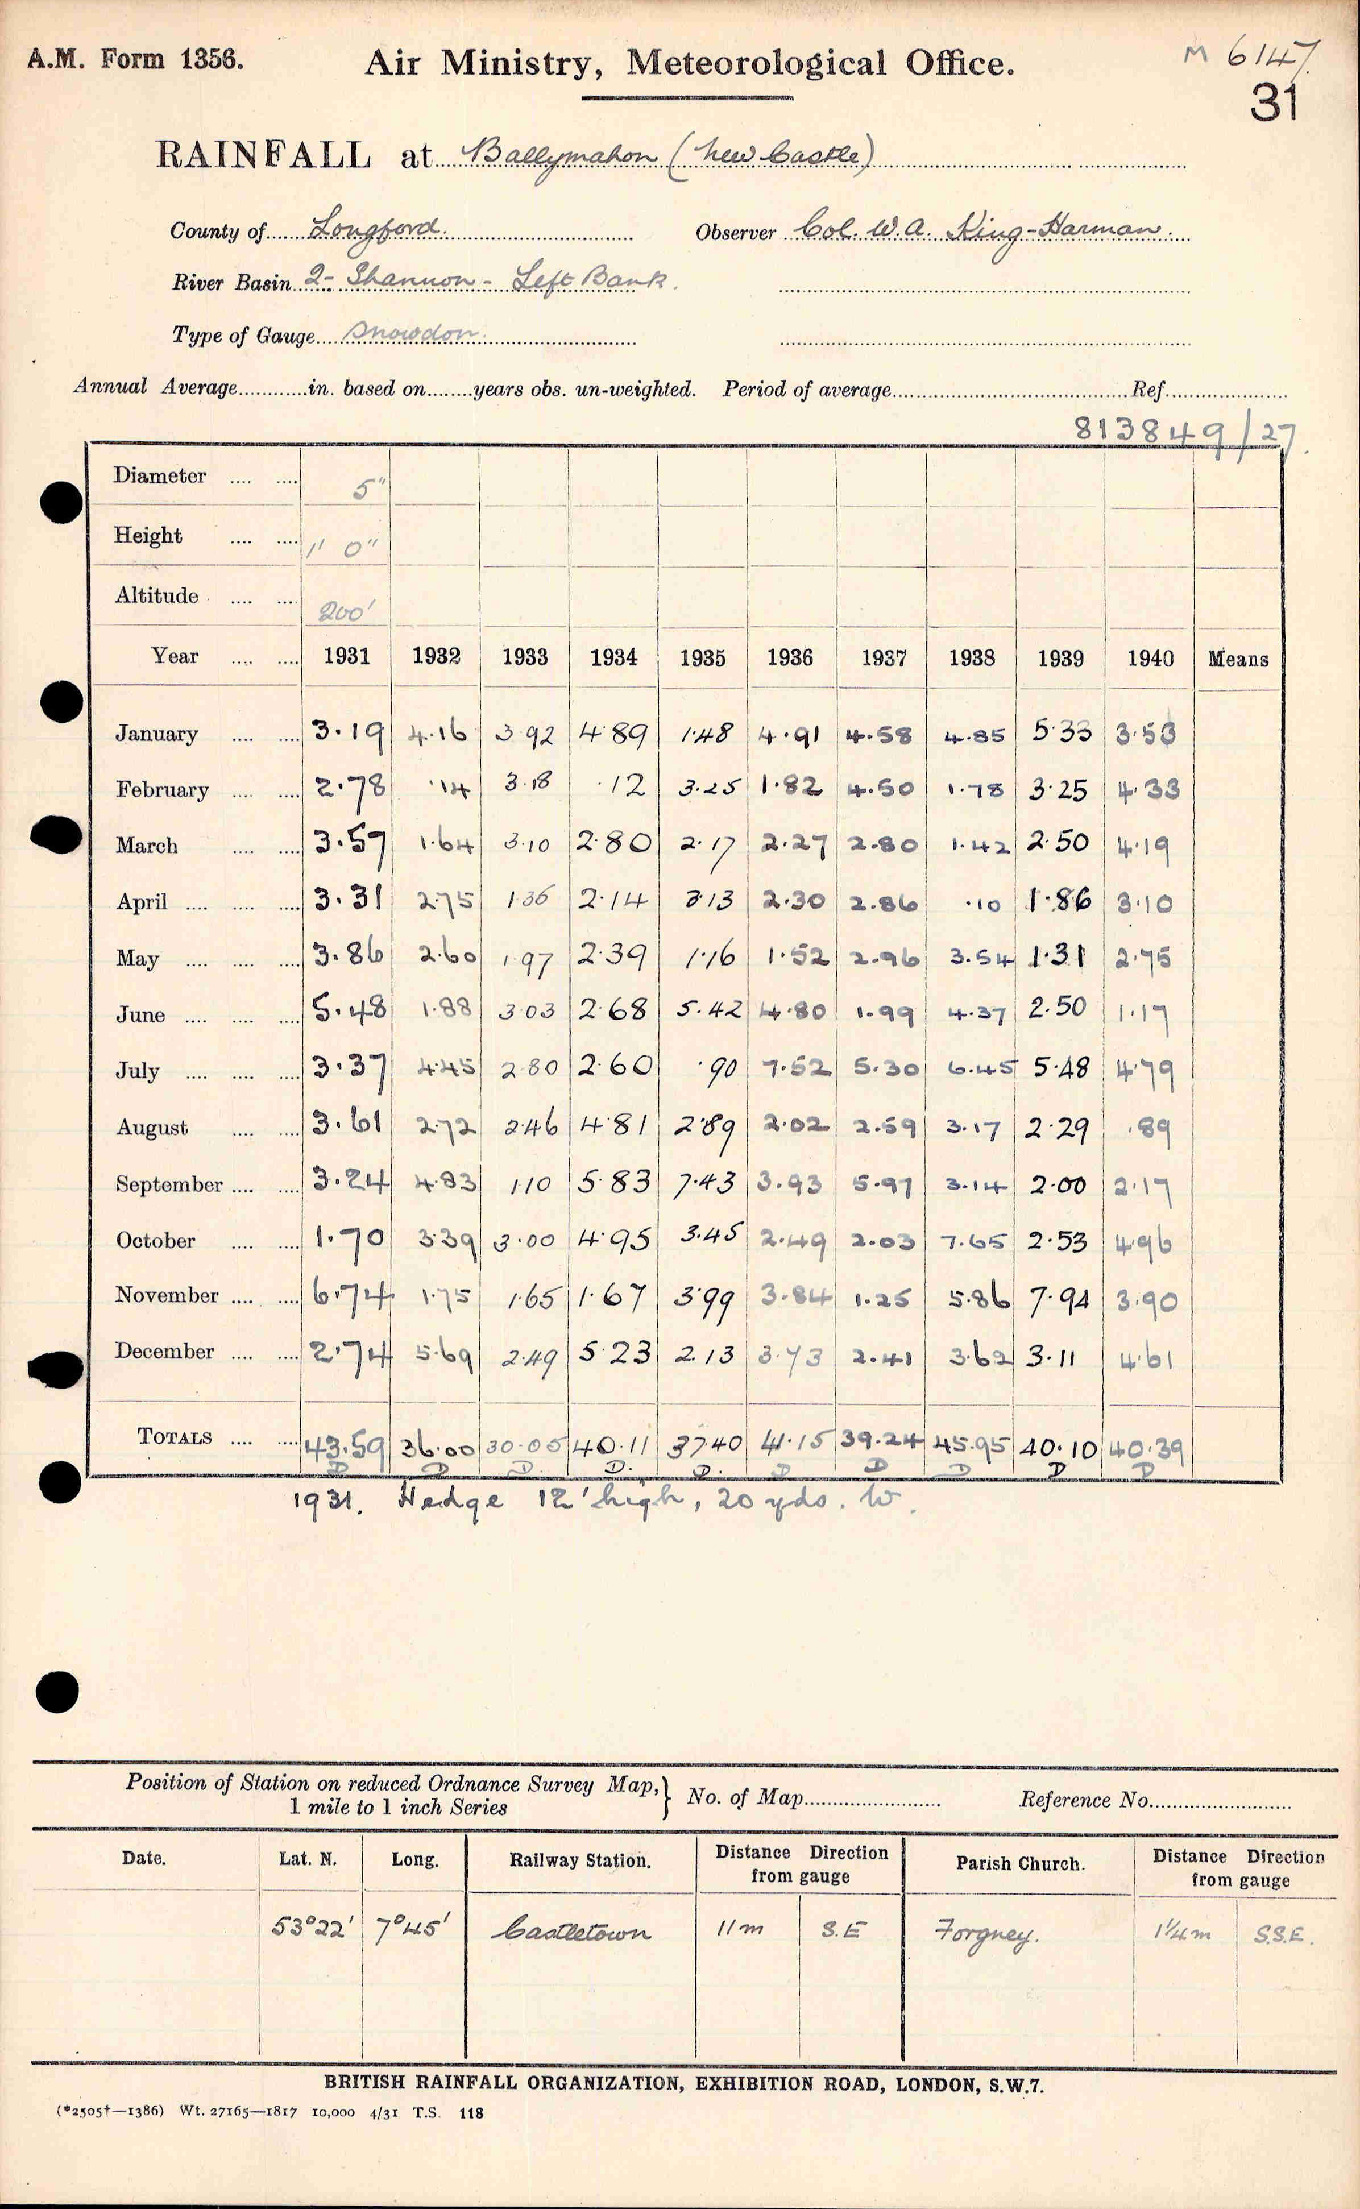 A.M. Form 1356.
Air Ministry, Meteorological Office.
M 6147
31
RAINFALL at Ballymahon (New Castle)
County of Longford. Observer Col. W.A. King-Harman.
River Basin 2- Shannon - Left Bank.
Type of Gauge Snowdon.
Annual Average............in. based on........years obs. un-weighted. Period of average............Ref............
813849/27.
Diameter .... .... 5"
Height .... .... 1' 0"
Altitude .... .... 200'
Year .... .... 1931 1932 1933 1934 1935 1936 1937 1938 1939 1940 Means
January .... .... 3.19 4.16 3.92 4.89 1.48 4.91 4.58 4.85 5.33 3.53
February .... .... 2.78 .14 3.18 .12 3.25 1.82 4.50 1.78 3.25 4.33
March .... .... 3.57 1.64 3.10 2.80 2.17 2.27 2.80 1.42 2.50 4.19
April .... .... .... 3.31 2.75 1.35 2.14 3.13 2.30 2.86 .10 1.86 3.10
May .... .... .... 3.86 2.60 1.97 2.39 1.16 1.52 2.96 3.54 1.31 2.75
June .... .... .... 5.48 1.88 3.03 2.68 5.42 4.80 1.99 4.37 2.50 1.17
July .... .... .... 3.37 4.45 2.80 2.60 .90 7.52 5.30 6.45 5.48 4.79
August .... .... 3.61 2.72 2.46 4.81 2.89 2.02 2.59 3.17 2.29 .89
September .... .... 3.24 4.83 1.10 5.83 7.43 3.93 5.97 3.14 2.00 2.17
October .... .... 1.70 3.39 3.00 4.95 3.45 2.49 2.03 7.65 2.53 4.96
November .... .... 6.74 1.75 1.65 1.67 3.99 3.84 1.25 5.86 7.94 3.90
December .... .... 2.74 5.69 2.49 5.23 2.13 3.73 2.41 3.62 3.11 4.61
TOTALS .... .... 43.59 36.00 30.05 40.11 37.40 41.15 39.24 45.95 40.10 40.39
D D D. D. D. D D D D D
1931. Hedge 12' high, 20 yds. W.
Position of Station on reduced Ordnance Survey Map,} No. of Map............ Reference No............
1 mile to 1 inch Series
Date. Lat. N. Long. Railway Station. Distance Direction from gauge Parish Church. Distance Direction from gauge
53°22' 7°45' Castletown 11m S.E Forgney. 1¼m S.S.E.
BRITISH RAINFALL ORGANIZATION, EXHIBITION ROAD, LONDON, S.W.7.
(*2505†—1386) Wt. 27165—1817 10,000 4/31 T.S. 118